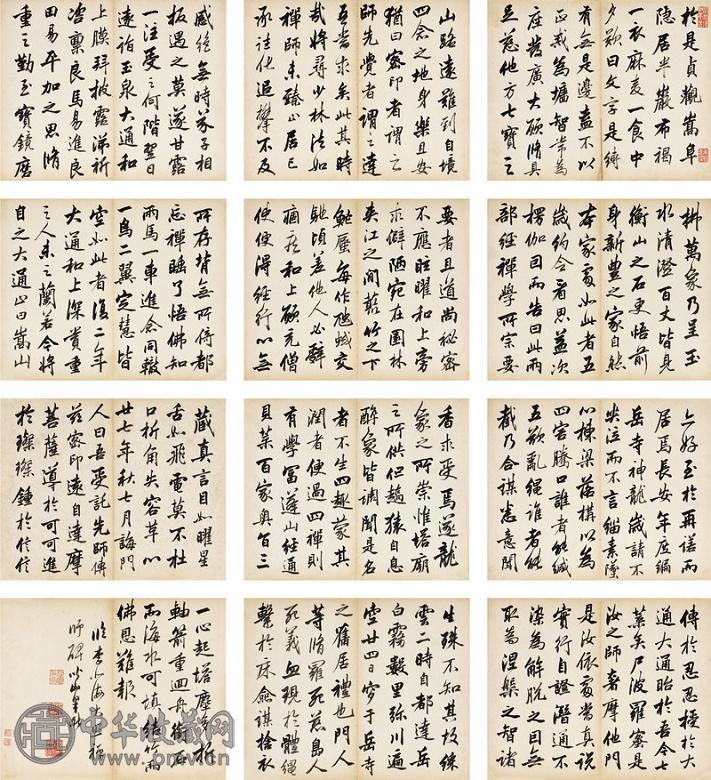 於是貞觀嵩阜
隱居半巖布褐
一衣麻麦一食中
夕歎曰文字是縛
有無是邊盍不以
正戒為墻智常為
座發廣大願脩具
足慈他方七寶三
山路遠難到自境
四念之地身樂且安
猶曰密印者謂之
師先覺者謂之達
吾當求矣此其時
哉將尋少林法如
禪師未臻止居已
承往化追攀不及
感絕無時芥子相
投遇之莫遂甘露
一注受之何階翌日
遠詣玉泉大通和
上膜拜披露涕祈
咨禀良馬易進良
田易平加之思脩
重之勤至寶鏡磨
拂萬象乃呈玉
水清澄百丈皆見
衡山之石更悟前
身新豐之家自然
本家處如此者五
歲約令看思益次
楞伽因而告曰此兩
部經禪學所宗要
要者且道尚秘密
不應眩曜和上旁
求僻陋宛在園林
夹江之間蒼竹之下
虵蠆每作虺蜮交
馳頃差他人必辭
痼疾和上願充僧
使便得經行心無
所存背無所得都
忘禪睡了悟佛知
兩馬一車進念同轍
一鳥二翼定慧皆
空如此者復二年
大通和上深賞重
之人未之蘭若令將
自之大通止曰嵩山
亦好至於再諾而
居焉長安年度編
岳寺神龍歲請不
哭泣而不言緇素墜
心棟梁落構以為
四害騰口誰者能緘
五欲亂繩誰者能
截乃合謀悉意聞
香求受焉遂龍
象之所崇惟塔廟
之所供但趨猿自息
醉象皆調聞是名
者不生四趣蒙其
潤者便過四禪則
有學富蓬山經通
貝葉百家奧旨三
藏真言目如曜星
舌如飛電莫不杜
口折角失容革心
廿七年秋七月誨門
人曰吾受託先師傳
茲密印遠自達摩
菩薩導於可可進
於璨璨鍾於信信
傳於忍忍授於大
通大通貽於吾今七
葉矣尸波羅蜜是
汝之師奢摩他門
是汝依處當真說
實行自證潛通不
染為解脫之因無
取為涅槃之智諸
生殊不知其故殊
雲二時自都達岳
白霧數里弥川遍
空廿四日窆于岳寺
之舊居禮也門人
等脩羅死島人
死義血現於體繩
繫於床僉謀捨衣
一心起塔摩折
軸箭重迴舟
兩海水可填結
佛恩難報
臨李北海
師碑
中华收藏网
www.pmxiv.com